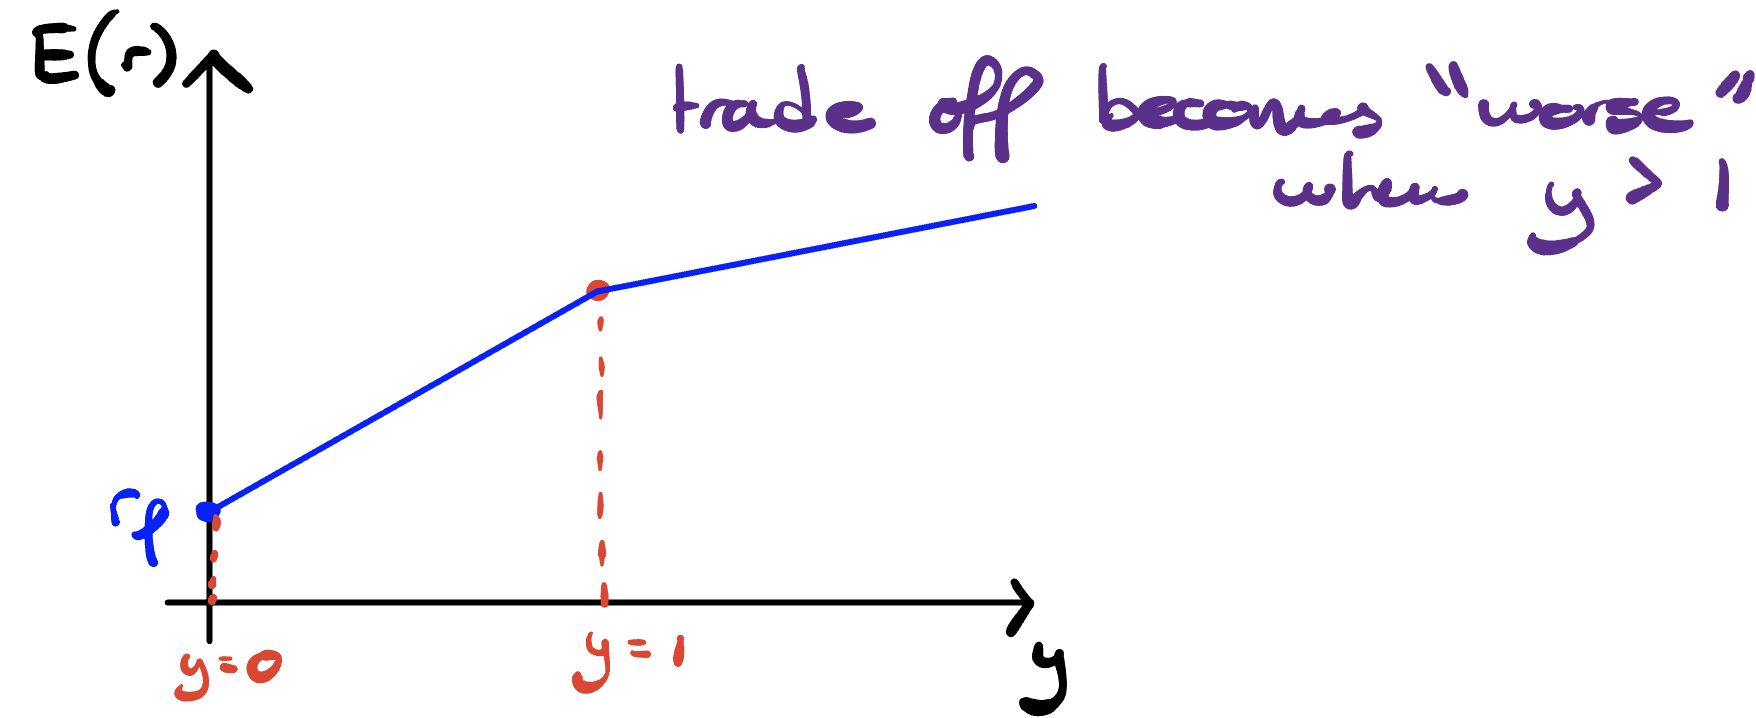 E(r)
trade off becomes "worse"
when y > 1
rf
y=0
y=1
y